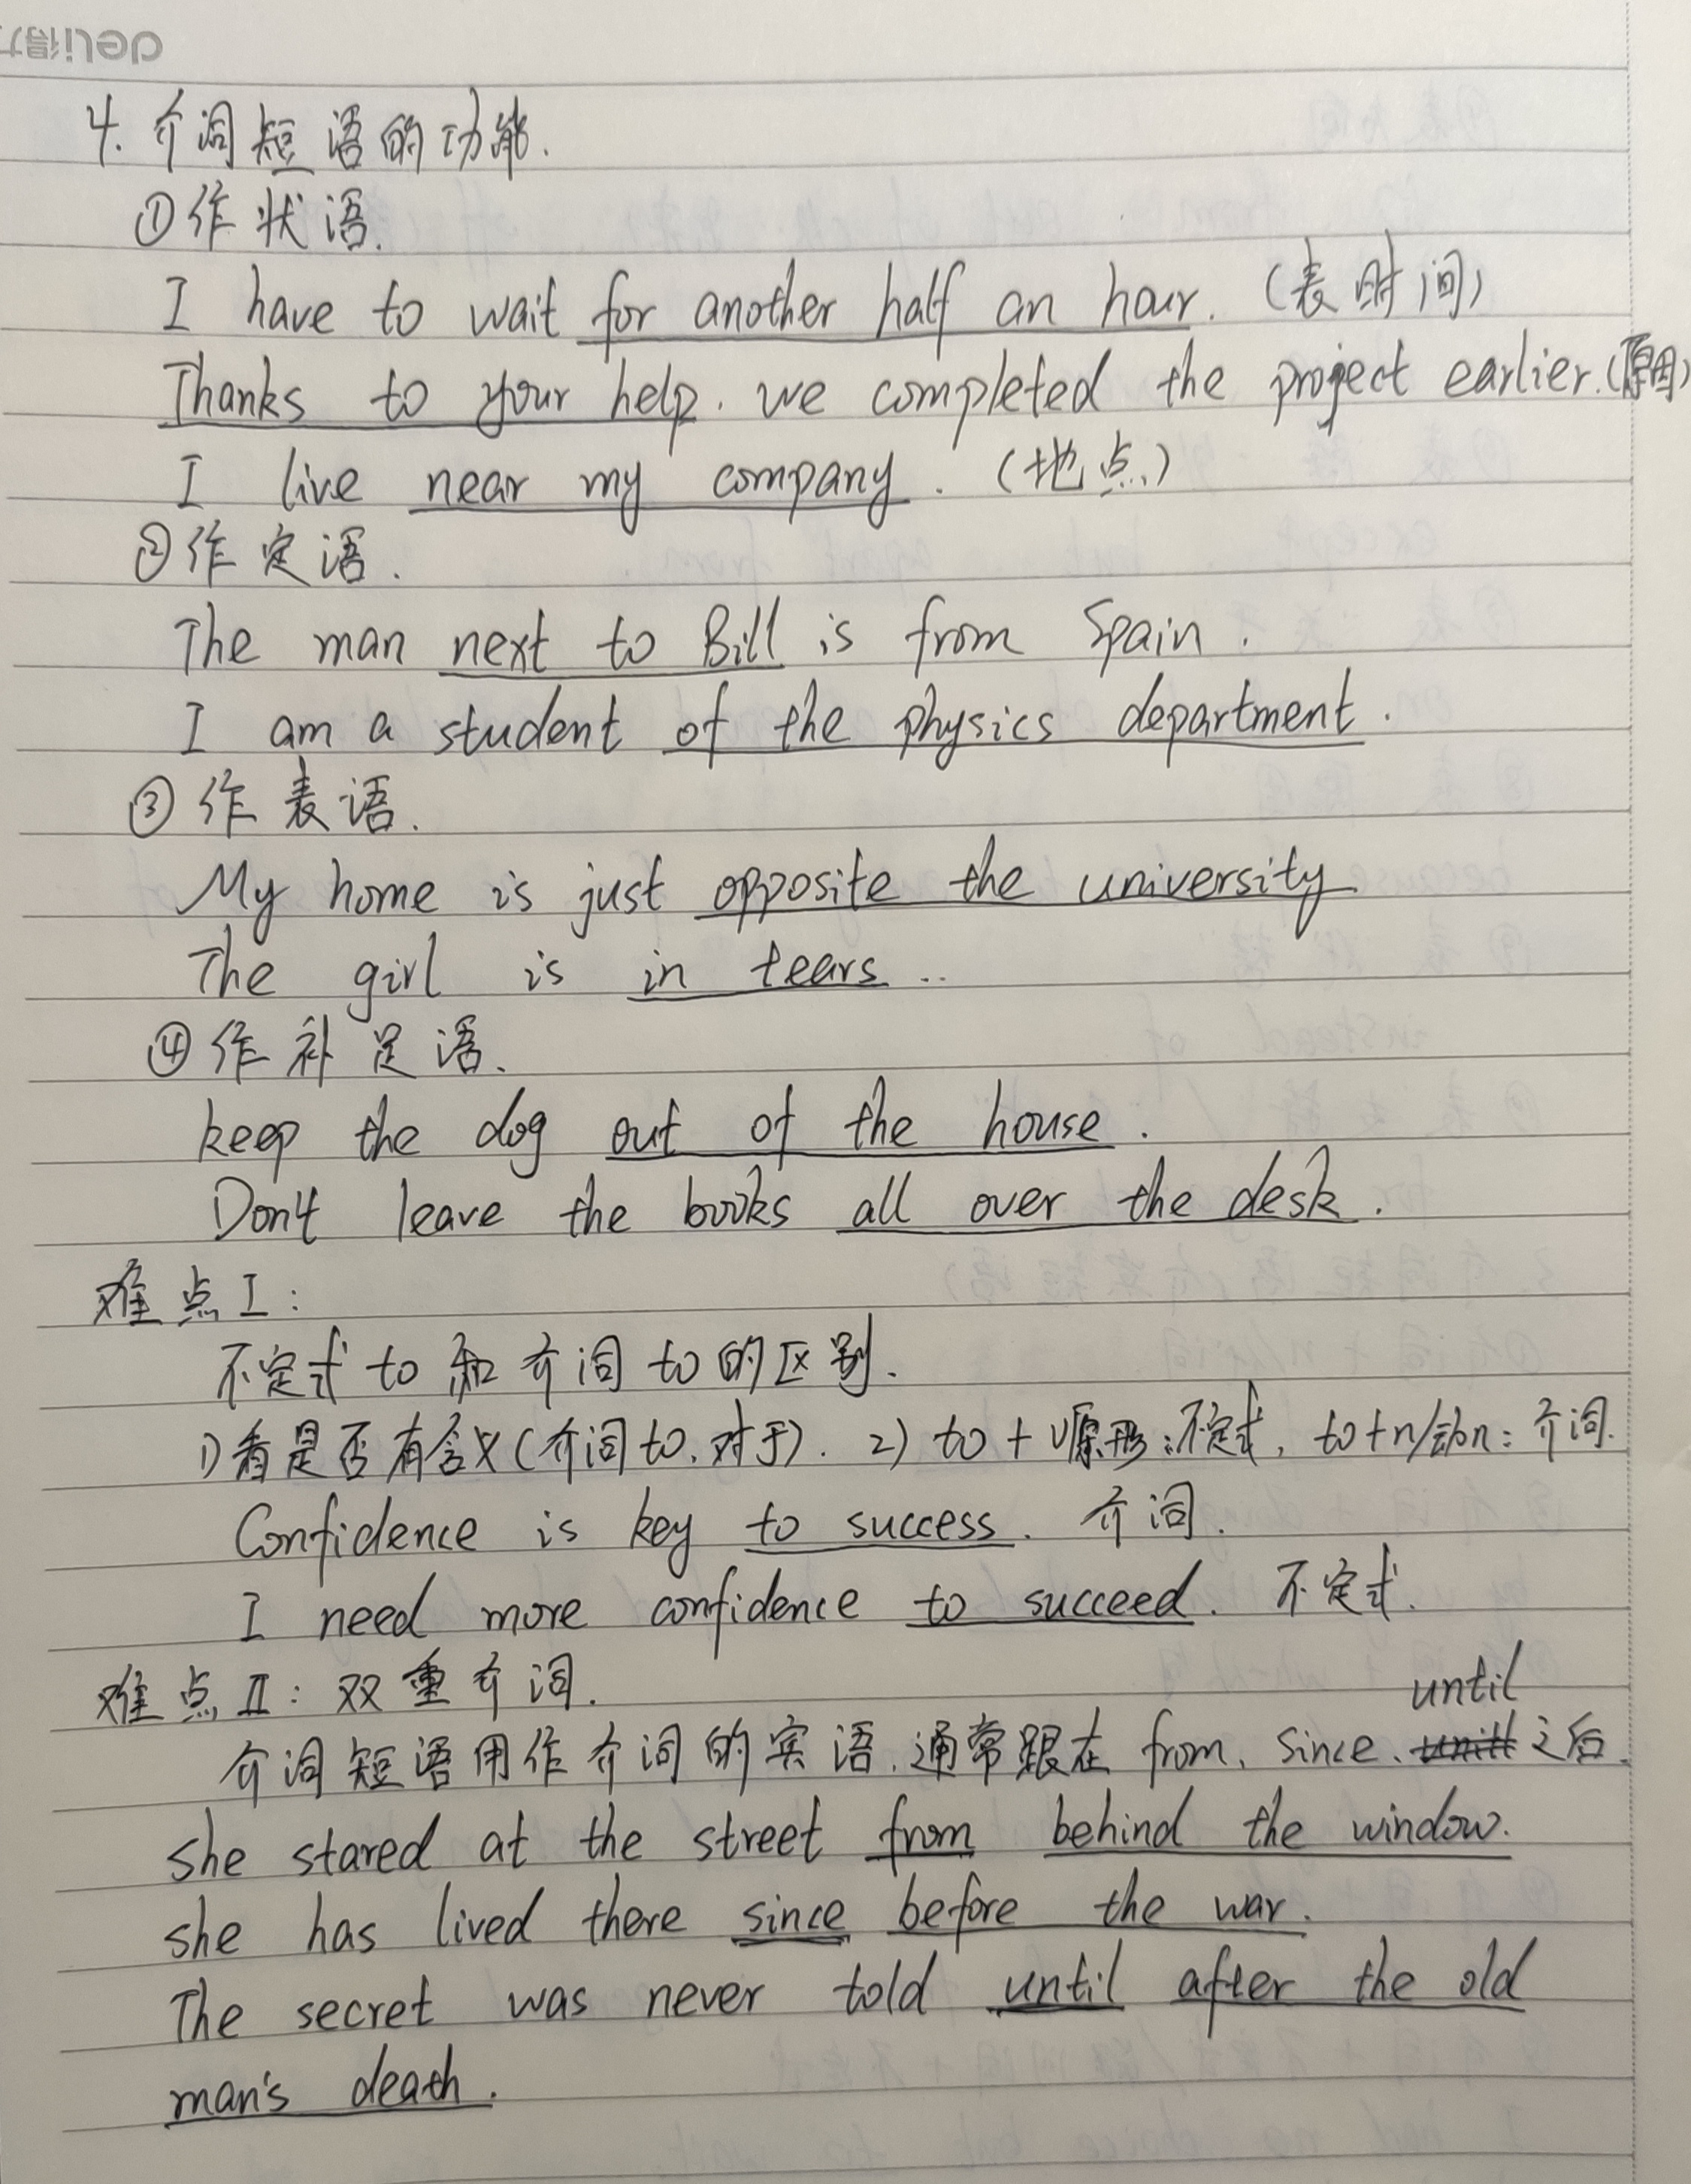 deli得力
4. 介词短语的功能.
①作状语.
I have to wait for another half an hour. (表时间)
Thanks to your help. we completed the project earlier.(原因)
I live near my company. (地点)
②作定语.
The man next to Bill is from Spain.
I am a student of the physics department.
③作表语.
My home is just opposite the university
The girl is in tears..
④作补足语.
keep the dog out of the house.
Don't leave the books all over the desk.
难点I:
不定式to和介词to的区别.
1)看是否有含义(介词to.对于). 2) to + v原形:不定式, to+n/动n: 介词.
Confidence is key to success. 介词.
I need more confidence to succeed. 不定式.
难点II: 双重介词.
until
介词短语用作介词的宾语.通常跟在from、since、之后.
she stared at the street from behind the window.
she has lived there since before the war.
The secret was never told until after the old
man's death.